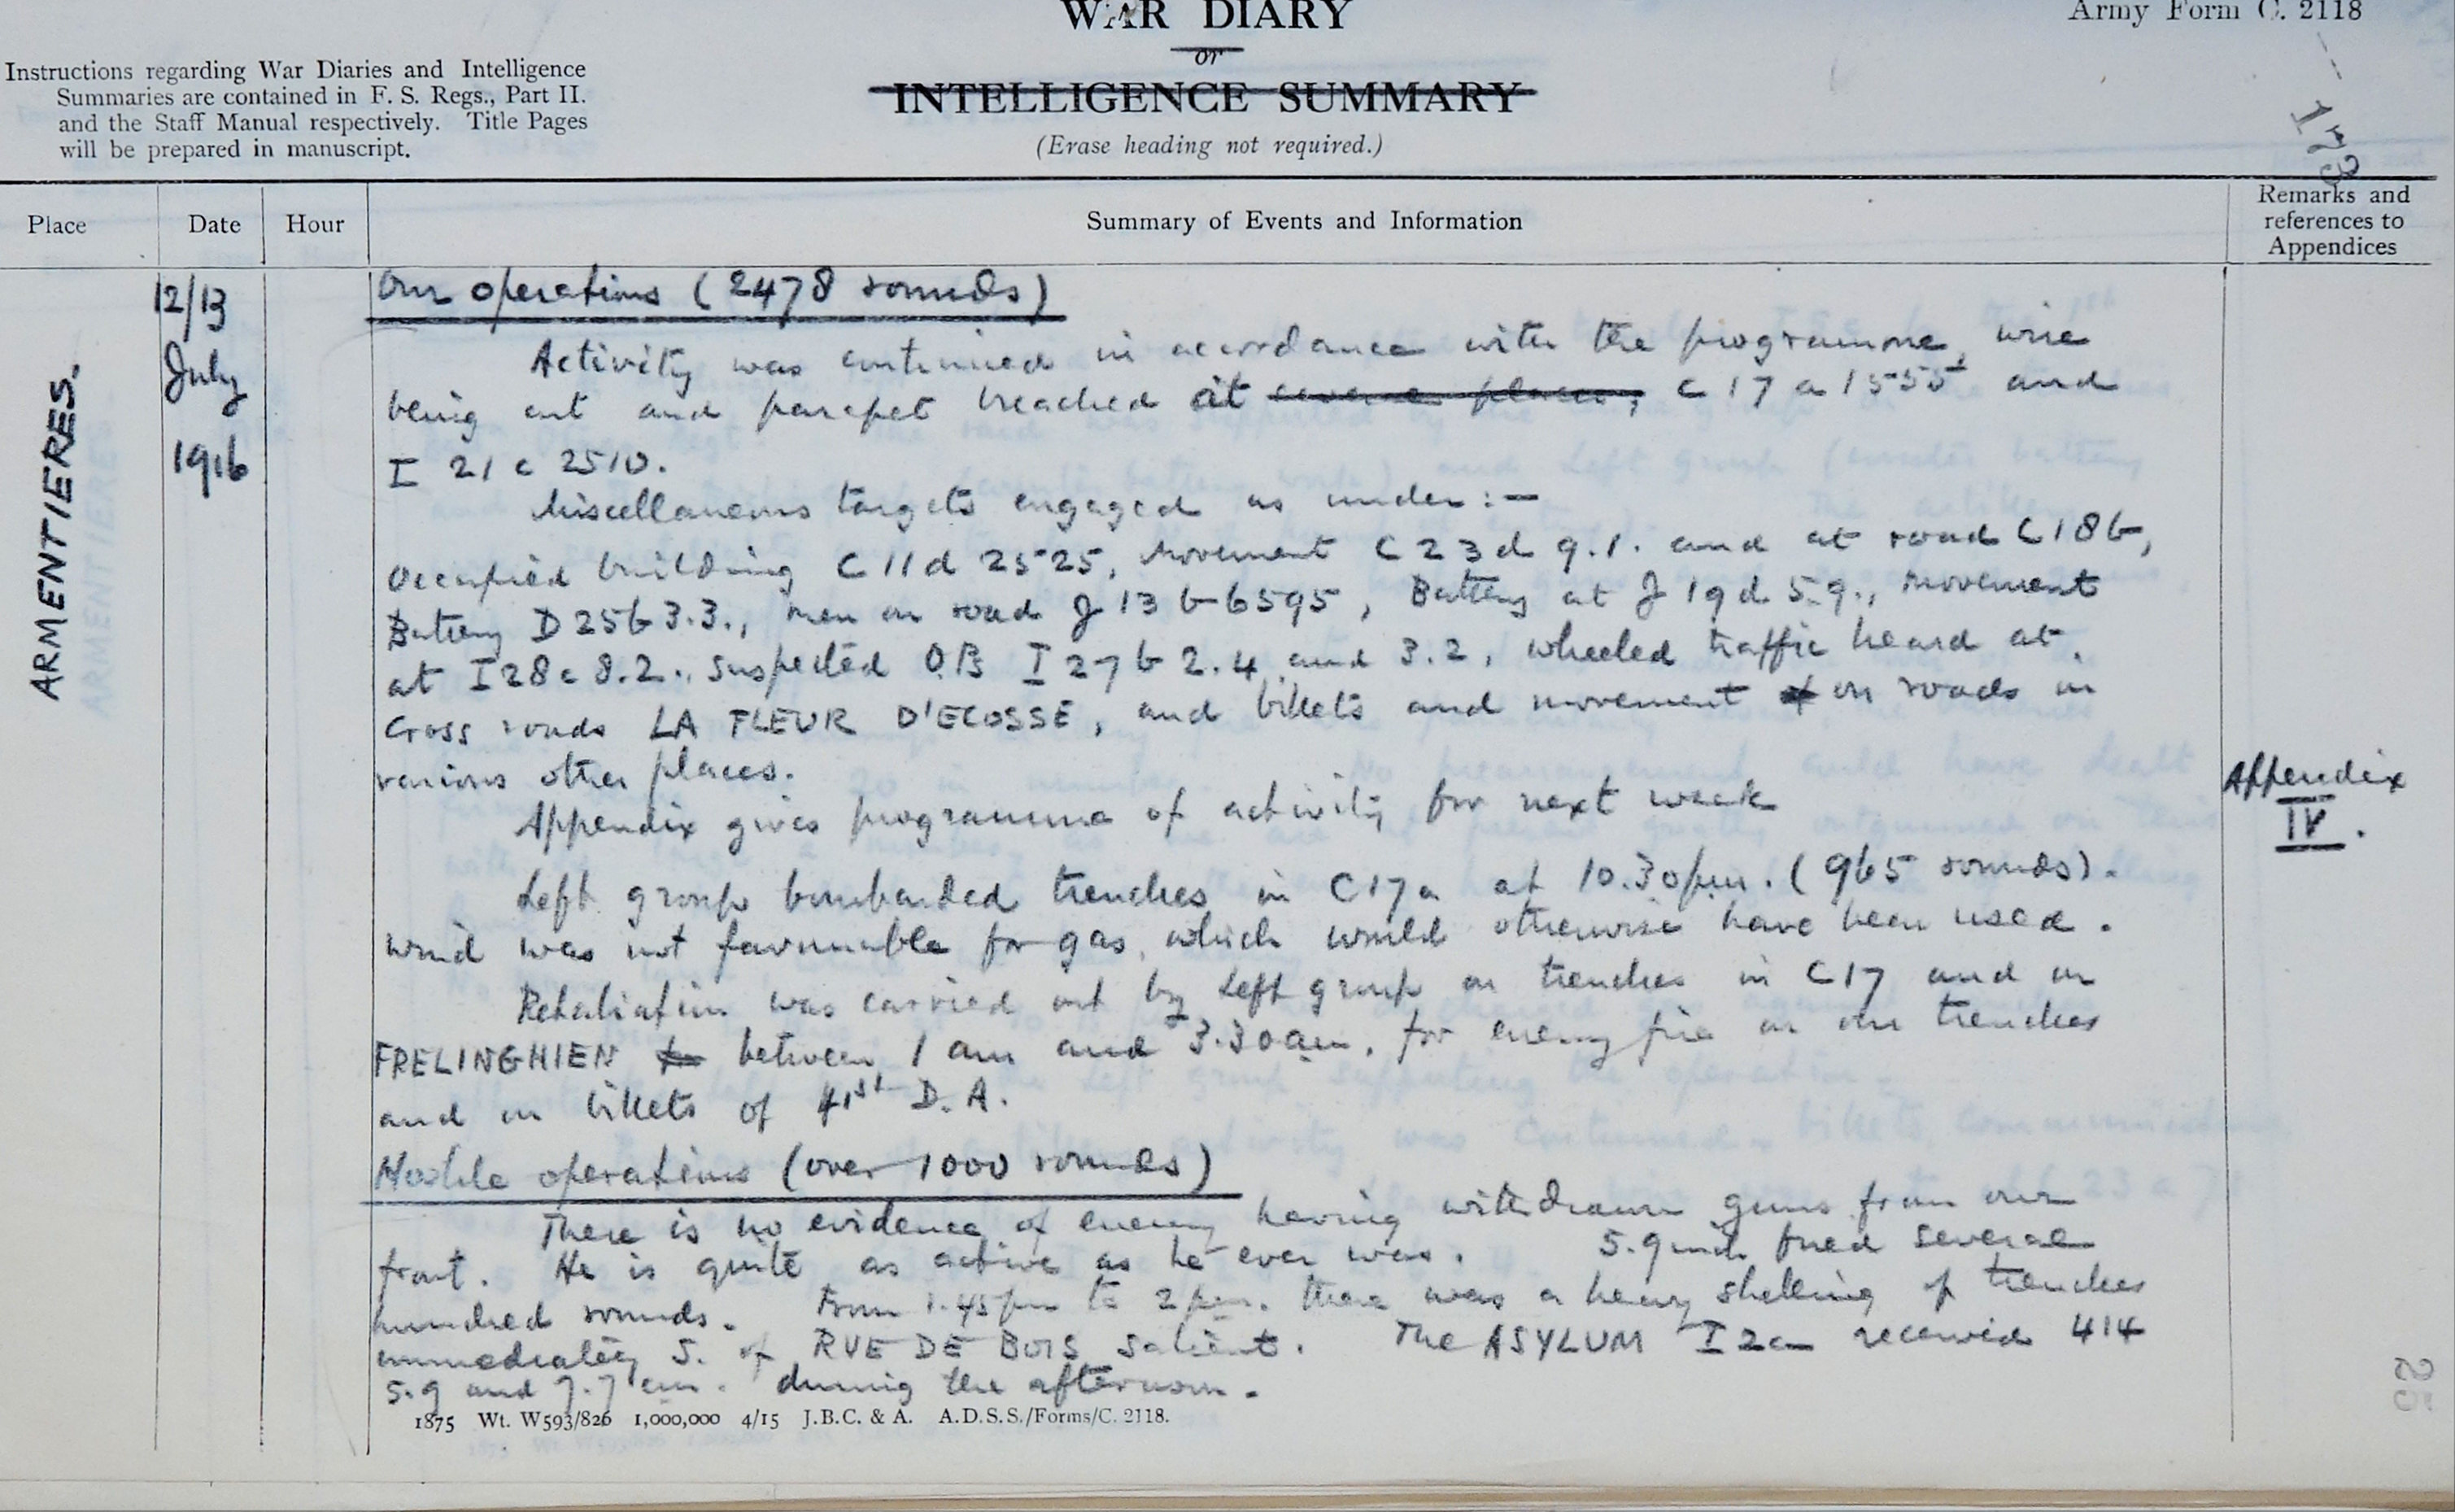 WAR DIARY
Army Form C. 2118
or
INTELLIGENCE SUMMARY
(Erase heading not required.)
Instructions regarding War Diaries and Intelligence
Summaries are contained in F. S. Regs., Part II.
and the Staff Manual respectively. Title Pages
will be prepared in manuscript.
173
Place
Date
Hour
Summary of Events and Information
Remarks and
references to
Appendices
ARMENTIERES.
12/13
July
1916
Our operations (2478 rounds)
Activity was continued in accordance with the programme, wire
being cut and parapet breached at several places, C 17 a 1555 and
I 21 c 2510.
Miscellaneous targets engaged as under :-
Occupied building C 11 d 2525, Movement C 23 d 9.1. and at road C 18 b,
Battery D 25 b 3.3., Men on road J 13 b 6595, Battery at J 19 d 5.9., Movement
at I 28 c 8.2., suspected O.B I 27 b 2.4 and 3.2, wheeled traffic heard at
Cross roads LA FLEUR D'ECOSSE, and billets and movement on roads in
various other places.
Appendix gives programme of activity for next week
Appendix
IV.
Left group bombarded trenches in C17a at 10.30pm. (965 rounds).
Wind was not favourable for gas, which would otherwise have been used.
Retaliation was carried out by Left group on trenches in C17 and on
FRELINGHIEN between 1 am and 3.30am, for enemy fire on our trenches
and on billets of 41st D.A.
Hostile operations (over 1000 rounds)
There is no evidence of enemy having withdrawn guns from our
front. He is quite as active as he ever was. 5.9 inch fired several
hundred rounds. From 1.45pm to 2 pm. there was a heavy shelling of trenches
immediately S. of RUE DE BOIS Salient. The ASYLUM I 2 c received 414
5.9 and 7.7 cm. during the afternoon.
1875 Wt. W593/826 1,000,000 4/15 J.B.C. & A. A.D.S.S./Forms/C. 2118.